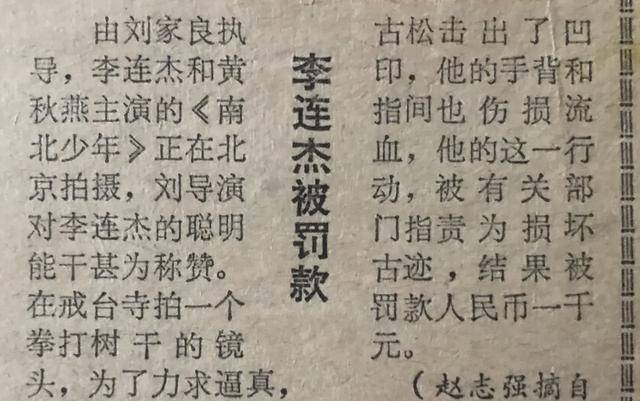 李连杰被罚款
由刘家良执
导，李连杰和黄
秋燕主演的《南
北少年》正在北
京拍摄，刘导演
对李连杰的聪明
能干甚为称赞。
在戒台寺拍一个
拳打树干的镜
头，为了力求逼真，
古松击出了凹
印，他的手背和
指间也伤损流
血，他的这一行
动，被有关部
门指责为损坏
古迹，结果被
罚款人民币一千
元。
（赵志强摘自